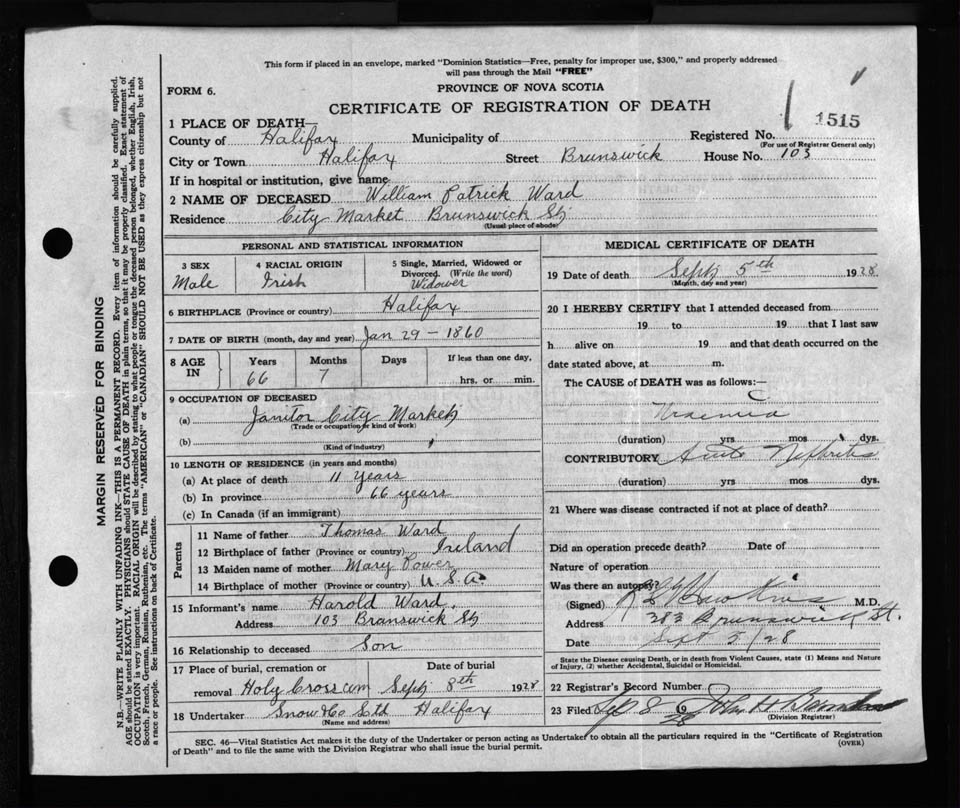 This form if placed in an envelope, marked "Dominion Statistics—Free, penalty for improper use, $300," and properly addressed
will pass through the Mail "FREE"
FORM 6.
PROVINCE OF NOVA SCOTIA
CERTIFICATE OF REGISTRATION OF DEATH
1515
1 PLACE OF DEATH—
County of Halifax Municipality of Registered No.
(For use of Registrar General only)
City or Town Halifax Street Brunswick House No. 103
If in hospital or institution, give name
2 NAME OF DECEASED William Patrick Ward
Residence City Market Brunswick St
(Usual place of abode)
PERSONAL AND STATISTICAL INFORMATION
3 SEX 4 RACIAL ORIGIN 5 Single, Married, Widowed or
Divorced. (Write the word)
Male Irish Widower
6 BIRTHPLACE (Province or country) Halifax
7 DATE OF BIRTH (month, day and year) Jan 29 – 1860
8 AGE IN Years Months Days If less than one day,
66 7 hrs. or min.
9 OCCUPATION OF DECEASED
(a) Janitor City Market
(Trade or occupation or kind of work)
(b)
(Kind of industry)
10 LENGTH OF RESIDENCE (in years and months)
(a) At place of death 11 years
(b) In province 66 years
(c) In Canada (if an immigrant)
Parents
11 Name of father Thomas Ward
12 Birthplace of father (Province or country) Ireland
13 Maiden name of mother Mary Power
14 Birthplace of mother (Province or country) U.S.A.
15 Informant's name Harold Ward
Address 103 Brunswick St
16 Relationship to deceased Son
17 Place of burial, cremation or Date of burial
removal Holy Cross cem Sept 8th 1928
18 Undertaker Snow & Co Ltd Halifax
(Name and address)
MEDICAL CERTIFICATE OF DEATH
19 Date of death Sept 5th 1928
(Month, day and year)
20 I HEREBY CERTIFY that I attended deceased from
19 to 19 that I last saw
h alive on 19 and that death occurred on the
date stated above, at m.
The CAUSE of DEATH was as follows:—
Uraemia
(duration) yrs mos dys.
CONTRIBUTORY Acute Nephritis
(duration) yrs mos dys.
21 Where was disease contracted if not at place of death?
Did an operation precede death? Date of
Nature of operation
Was there an autopsy?
(Signed) M.D.
Address 283 Brunswick St.
Date Sept 5/28
State the Disease causing Death, or in death from Violent Causes, state (1) Means and Nature
of Injury, (2) whether Accidental, Suicidal or Homicidal.
22 Registrar's Record Number
23 Filed Sep 8 1928 John H
(Division Registrar)
SEC. 46—Vital Statistics Act makes it the duty of the Undertaker or person acting as Undertaker to obtain all the particulars required in the "Certificate of Registration
of Death" and to file the same with the Division Registrar who shall issue the burial permit.
(OVER)
MARGIN RESERVED FOR BINDING
N.B.—WRITE PLAINLY WITH UNFADING INK—THIS IS A PERMANENT RECORD. Every item of information should be carefully supplied.
AGE should be stated EXACTLY. PHYSICIANS should STATE CAUSE OF DEATH in plain terms, so that it may be properly classified. Exact statement of
OCCUPATION is very important. RACIAL ORIGIN will be described by stating to what people or tongue the deceased person belonged, whether English, Irish,
Scotch, French, German, Russian, Ruthenian, etc. The terms "AMERICAN" or "CANADIAN" SHOULD NOT BE USED as they express citizenship but not
a race or people. See instructions on back of Certificate.